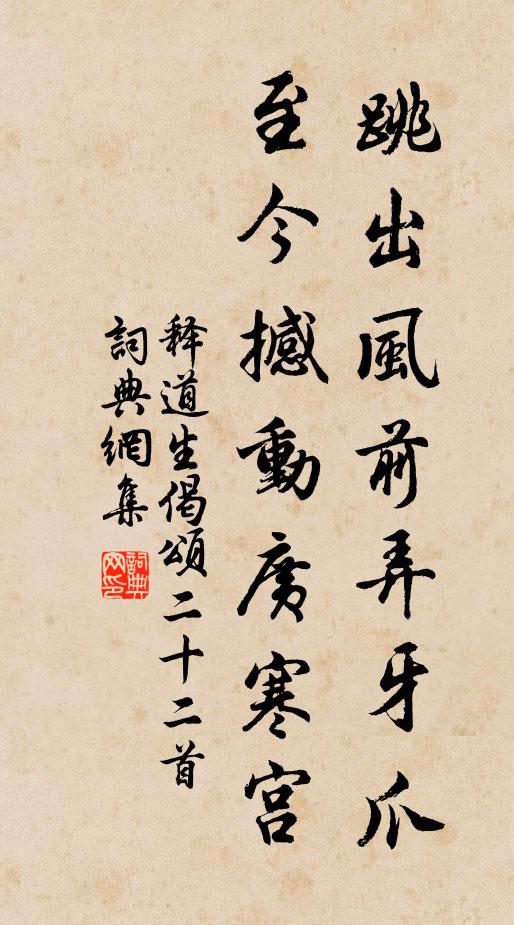 跳出風前弄牙爪
至今撼動廣寒宮
释道生偈頌二十二首
詞典網集
詞典網印